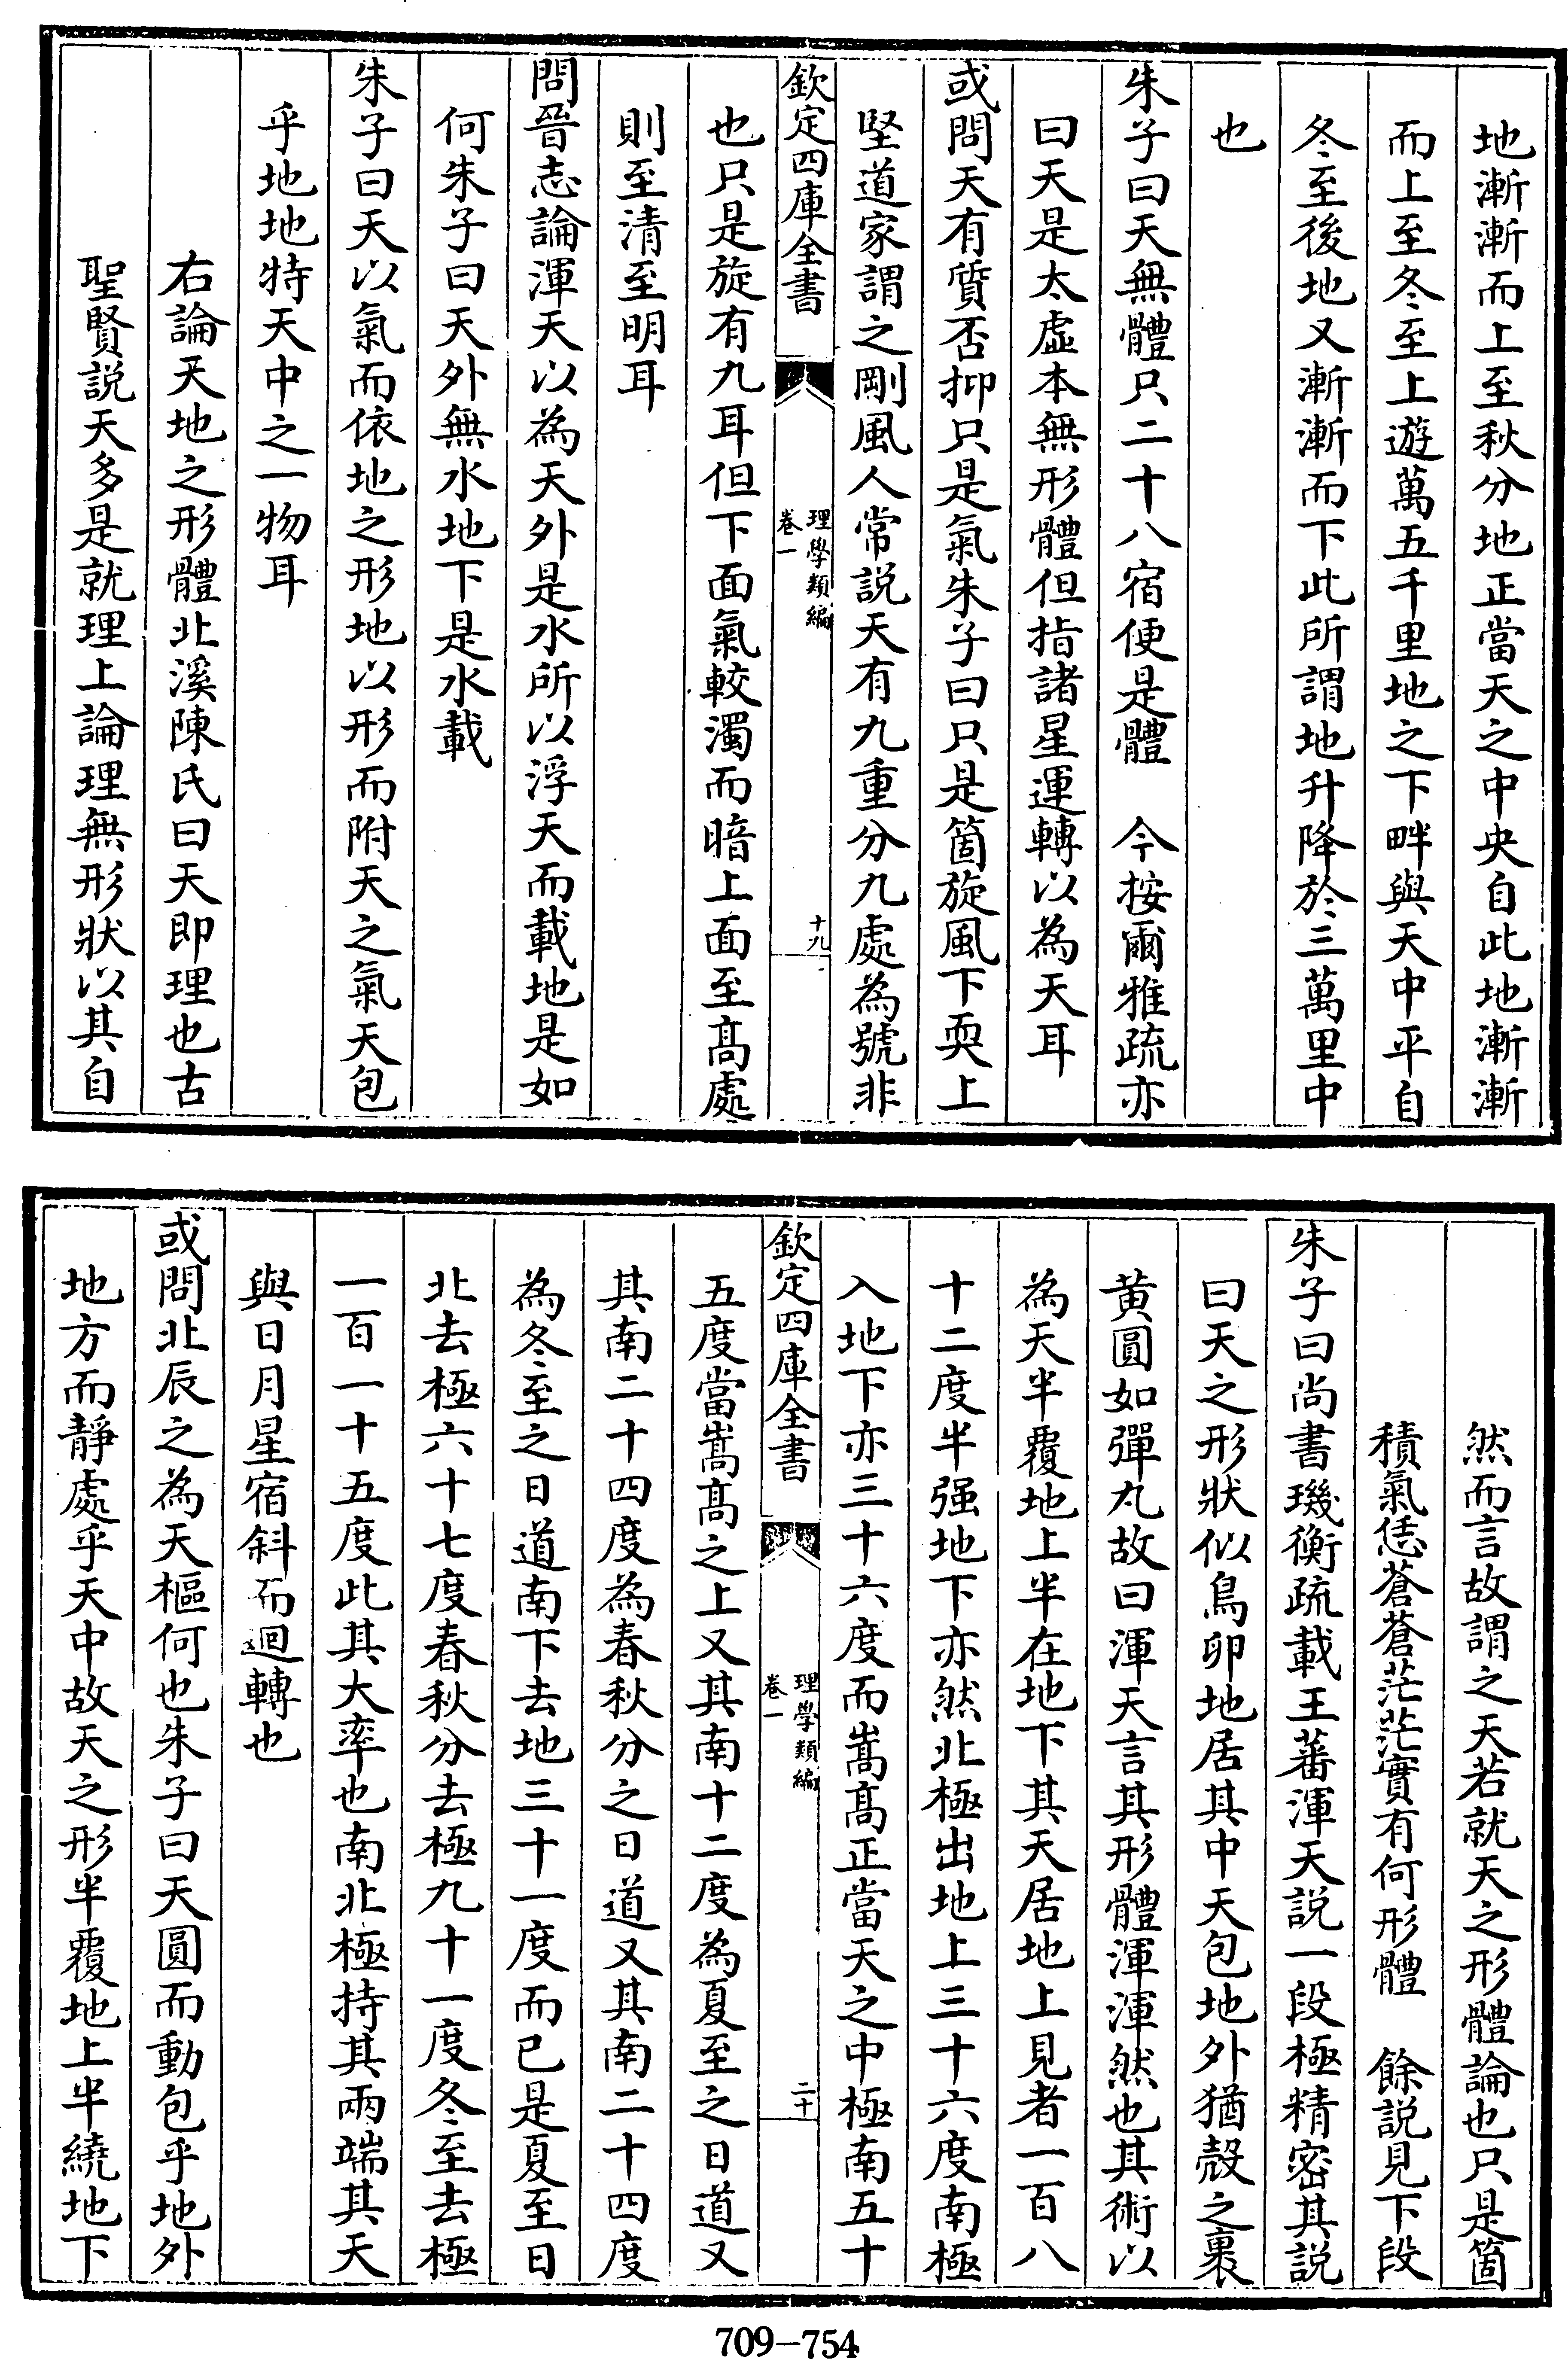 地漸漸而上至秋分地正當天之中央自此地漸漸
而上至冬至上遊萬五千里地之下畔與天中平自
冬至後地又漸漸而下此所謂地升降於三萬里中
也
朱子曰天無體只二十八宿便是體　今按爾雅疏亦
曰天是太虛本無形體但指諸星運轉以為天耳
或問天有質否抑只是氣朱子曰只是箇旋風下耎上
堅道家謂之剛風人常説天有九重分九處為號非
欽定四庫全書
理學類編
卷一
十九
也只是旋有九耳但下面氣較濁而暗上面至髙處
則至清至明耳
問晉志論渾天以為天外是水所以浮天而載地是如
何朱子曰天外無水地下是水載
朱子曰天以氣而依地之形地以形而附天之氣天包
乎地地特天中之一物耳
右論天地之形體北溪陳氏曰天即理也古
聖賢説天多是就理上論理無形狀以其自
然而言故謂之天若就天之形體論也只是箇
積氣恁蒼蒼茫茫實有何形體　餘説見下段
朱子曰尚書璣衡疏載王蕃渾天説一段極精密其説
曰天之形狀似鳥卵地居其中天包地外猶殼之裹
黄圓如彈丸故曰渾天言其形體渾渾然也其術以
為天半覆地上半在地下其天居地上見者一百八
十二度半强地下亦然北極出地上三十六度南極
入地下亦三十六度而嵩髙正當天之中極南五十
欽定四庫全書
理學類編
卷一
二十
五度當嵩髙之上又其南十二度為夏至之日道又
其南二十四度為春秋分之日道又其南二十四度
為冬至之日道南下去地三十一度而已是夏至日
北去極六十七度春秋分去極九十一度冬至去極
一百一十五度此其大率也南北極持其兩端其天
與日月星宿斜而迴轉也
或問北辰之為天樞何也朱子曰天圓而動包乎地外
地方而靜處乎天中故天之形半覆地上半繞地下
709-754